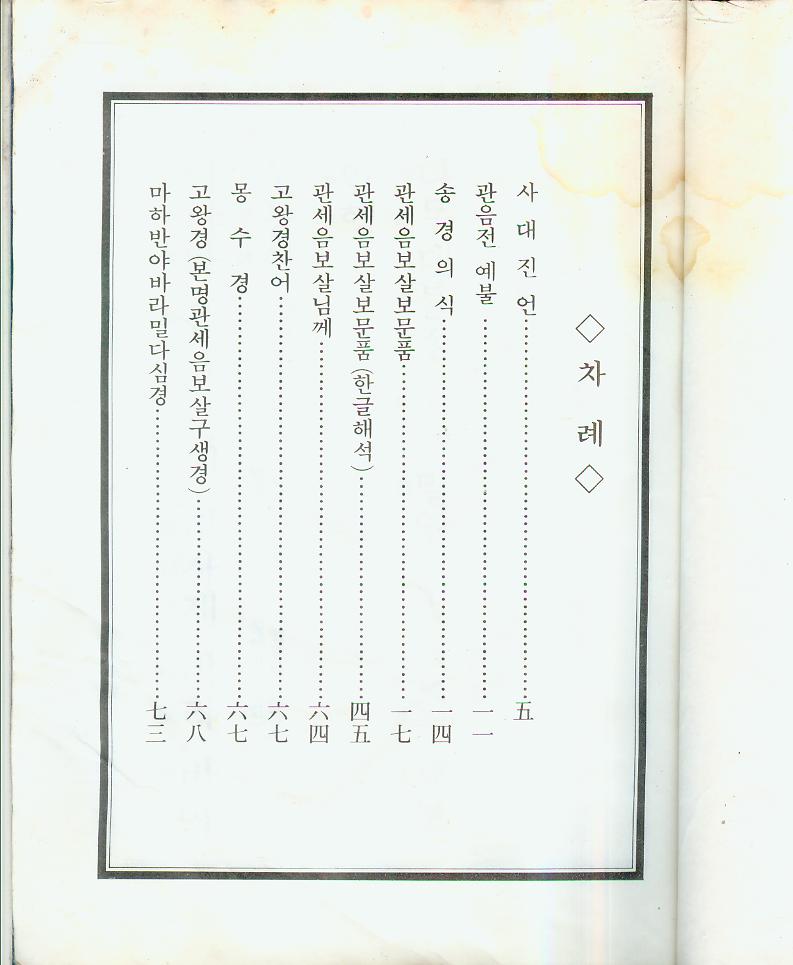 ◇차 례◇
사 대 진 언……五
관음전 예불……一一
송 경 의 식……一四
관세음보살보문품……一七
관세음보살보문품(한글해석)……四五
관세음보살님께……六四
고왕경찬어……六七
몽 수 경……六七
고왕경(본명관세음보살구생경)……六八
마하반야바라밀다심경……七三